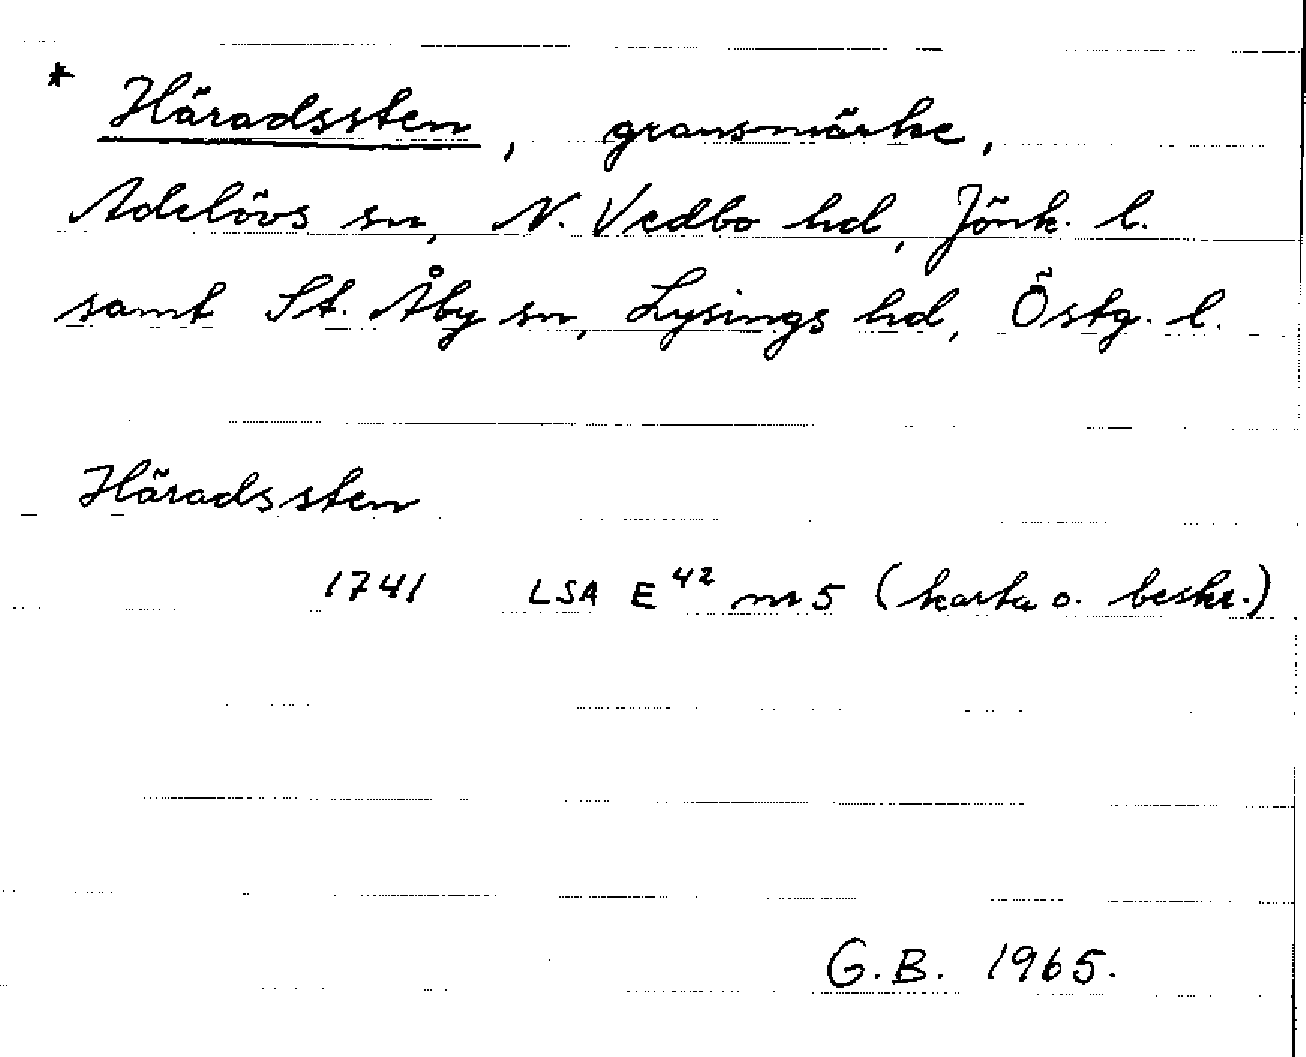 * Häradssten, gränsmärke,
Adelövs sn, N. Vedbo hd, Jönk. l.
samt St. Åby sn, Lysings hd, Östg. l.
Häradssten
1741 LSA E⁴² nr 5 (karta o. beskr.)
G.B. 1965.